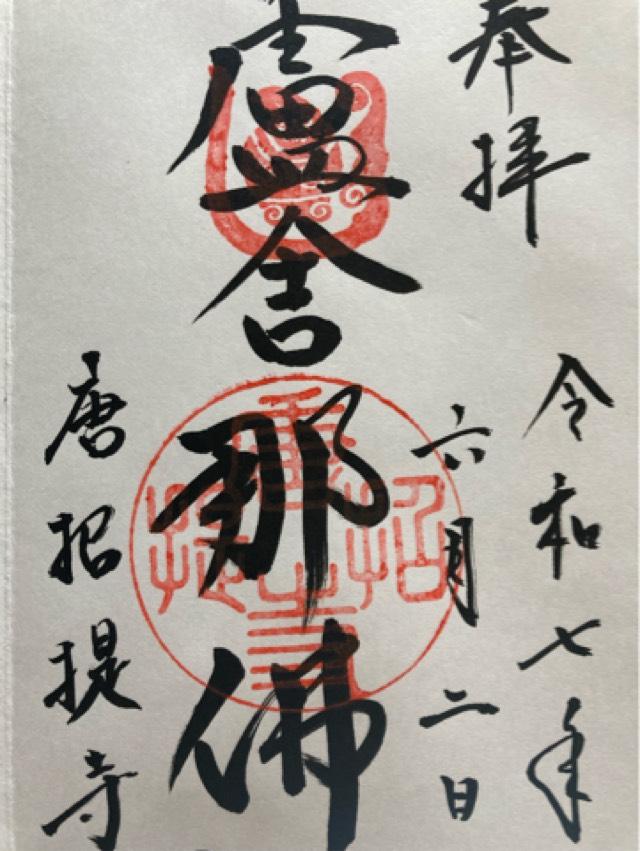 奉拝
令和七年
六月二日
盧舎那佛
唐招提寺